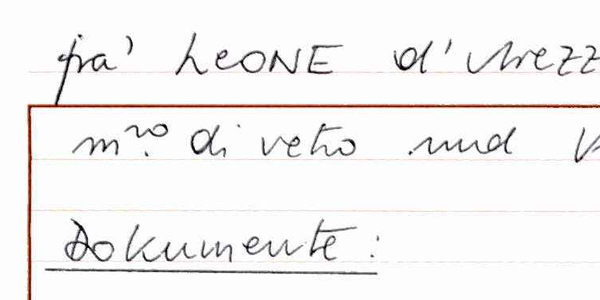 fra' LEONE d'Arezz
m.ro di vetro und V
Dokumente: